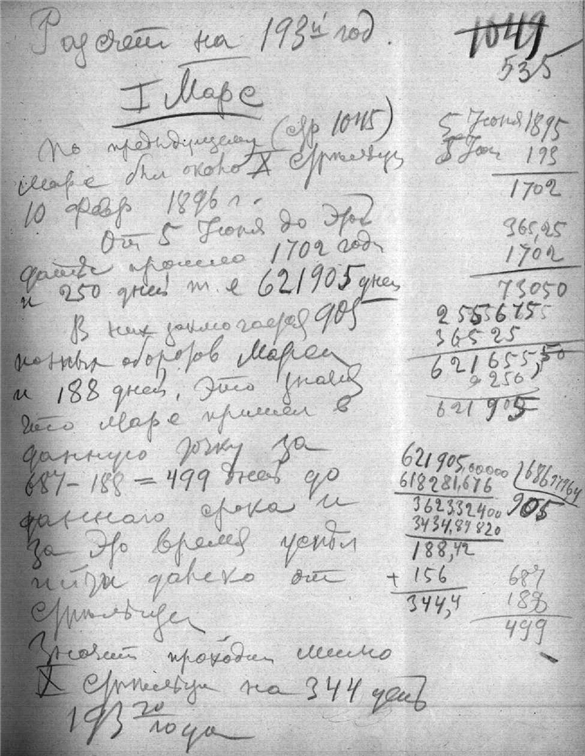 Рассчет на 193й год.
1049
535
I Марс
По предыдущему (стр 1045)
Марс был около X Стрельца
10 февр 1896 г.
От 5 Июня до этой
даты прошло 1702 года
и 250 дней т. е 621905 дней
В них заключается 905
полных оборотов Марса
и 188 дней. Это значит
что Марс пришел в
данную точку за
687-188=499 дней до
даннаго срока и
за это время успел
уйти далеко от
Стрельца
Значит проходил мимо
X Стрельца на 344 день
193 го года
5 Июня 1895
193
1702
365,25
1702
73050
255675
36525
621655,50
250
621905
621905,00000
618281,676
905
362332400
3434,89820
188,42
+ 156
344,4
687
188
499